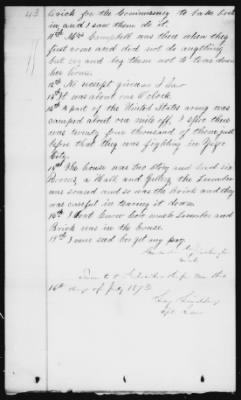 43
brick for the Commissary to bake bread
in and I saw them do it.
11th Mrs Campbell was there when they
first came and did not do anything
but cry and beg them not to tear down
her house.
12th No receipt given as I saw
13th It was about one O'clock.
14th A part of the United States army was
camped about one mile off. I spose there
was twenty four thousand of them just
before that they was fighting in Yazoo
City.
15th The house was two story and had six
Rooms, a Hall and Gallery the Lumber
was sound and so was the brick and they
was careful in tearing it down
16th I dont know how much Lumber and
Brick was in the house.
17th I never said her get any pay.
Sworn to & Subscribed before me this
16th day of July 1873